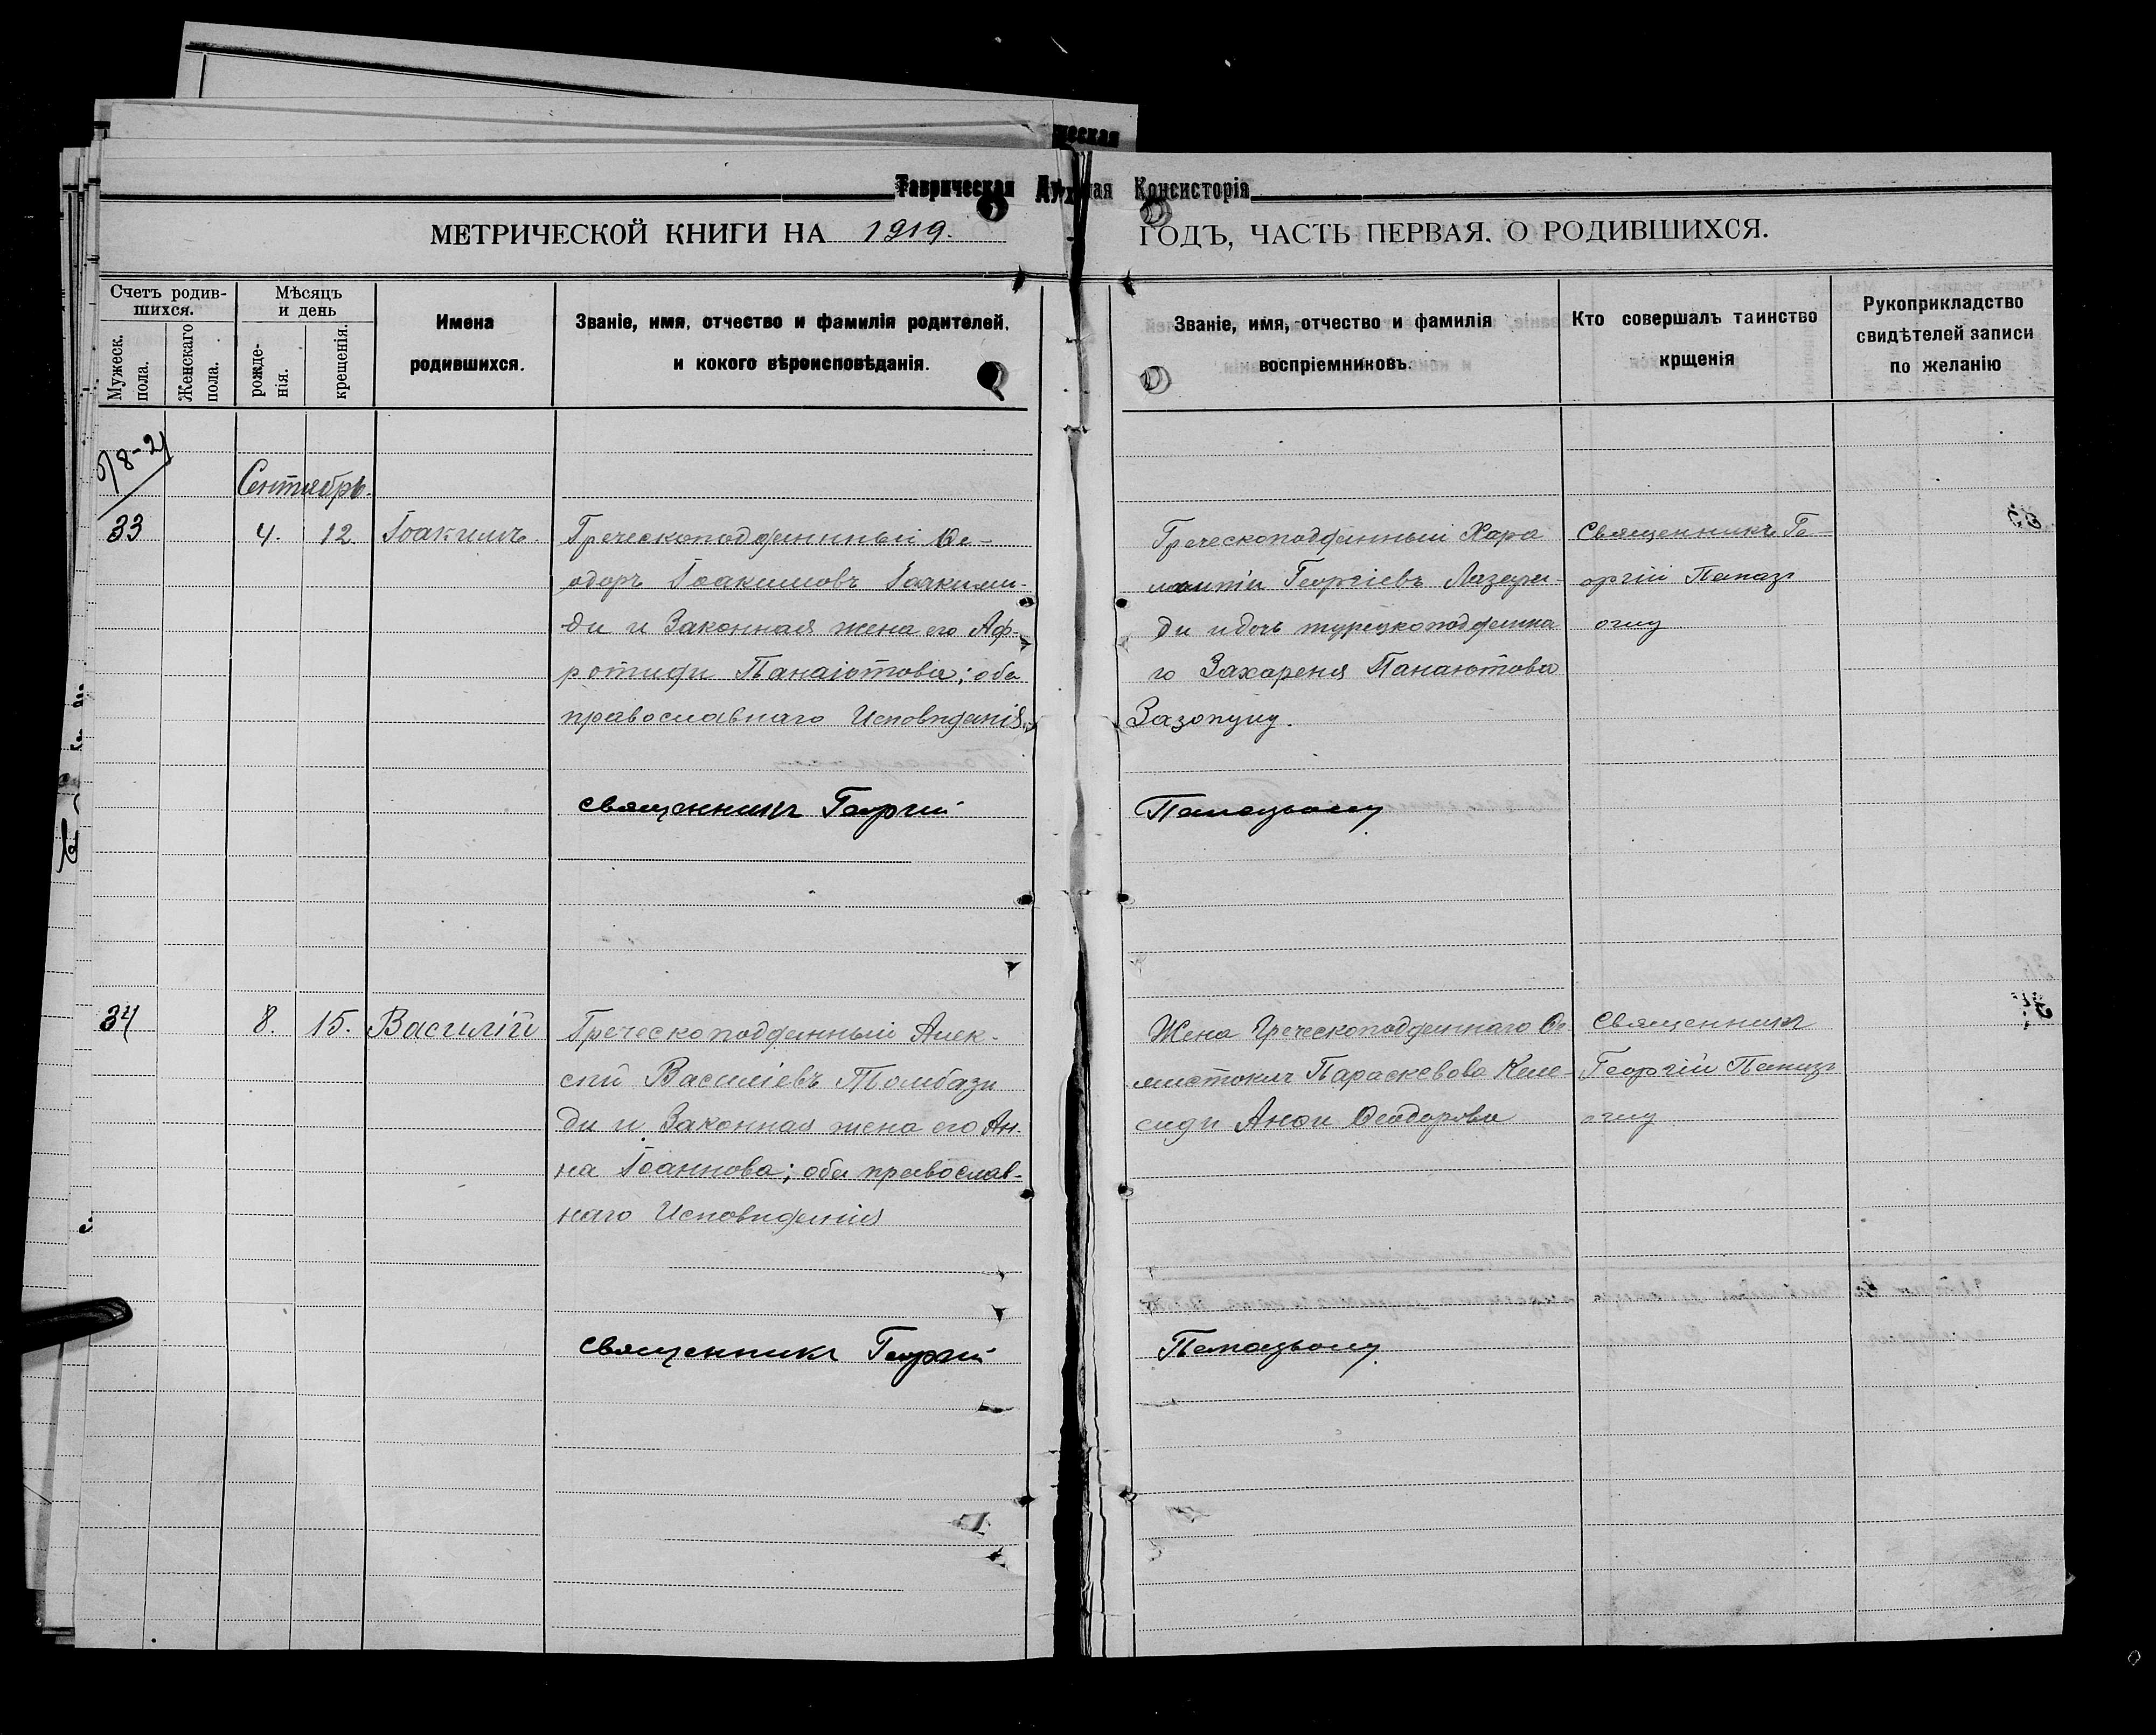 ческая
Таврическая Духовная Консисторія
МЕТРИЧЕСКОЙ КНИГИ НА 1919. ГОДЪ, ЧАСТЬ ПЕРВАЯ. О РОДИВШИХСЯ.
Счетъ родив-
шихся.
Мужеск.
пола.
Женскаго
пола.
Мѣсяцъ
и день
рожде-
нія.
крещенія.
Имена
родившихся.
Званіе, имя, отчество и фамилія родителей,
и кокого вѣроисповѣданія.
Званіе, имя, отчество и фамилія
воспріемниковъ.
Кто совершалъ таинство
крщенія
Рукоприкладство
свидѣтелей записи
по желанію
Сентябрь.
33
4.
12.
Іоакимъ.
Греческоподданный Ѳе-
одоръ Іоакимовъ Іоакими-
ди и Законная жена его Аф-
ротиди Панаіотова; оба
православнаго Исповѣданія.
Греческоподданный Хара
лампи Георгіевъ Лазари-
ди и дочь турецкоподданна
го Захареня Панаютова
Зазопулу.
Священникъ Ге-
оргій Папаз
оглу
Священникъ Георгій
Папазъоглу
34
8.
15.
Василій
Греческоподданный Алек-
сѣй Василіевъ Томбази
ди и Законная жена его Ан-
на Іоаннова; оба православ-
наго Исповѣданія
Жена Греческоподданнаго Ѳе-
мистокли Параскевова Келе-
сиди Анѳи Ѳеодорова
Священникъ
Георгій Папазъ
оглу
Священникъ Георгій
Папазъоглу